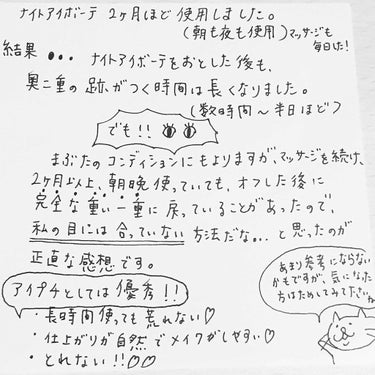 ナイトアイボーテ 2ヶ月ほど使用しました。
(朝も夜も使用) マッサージも
毎日した!
結果●●● ナイトアイボーテをおとした後も、
奥二重の跡がつく時間は長くなりました。
(数時間〜半日ほど?)
でも!!
まぶたのコンディションにもよりますが、マッサージを続け、
2ヶ月以上、朝晩使っていても、オフした後に
完全な重い一重に戻っていることがあったので、
私の目には合っていない方法だな... と思ったのが
正直な感想です。
アイプチとしては優秀!!
・長時間使っても荒れない♡
・仕上がりが自然でメイクがしやすい♡
・とれない!!♡♡
あまり参考にならない
かもですが、気になった
方はためしてみて下さいね